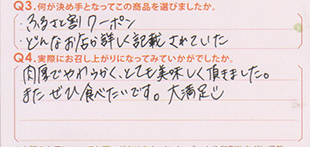 Q3.何が決め手となってこの商品を選びましたか。
・ふるさと割クーポン
・どんなお店か詳しく記載されていた
Q4.実際にお召し上がりになってみていかがでしたか。
肉厚でやわらかく、とても美味しく頂きました。
またぜひ食べたいです。大満足